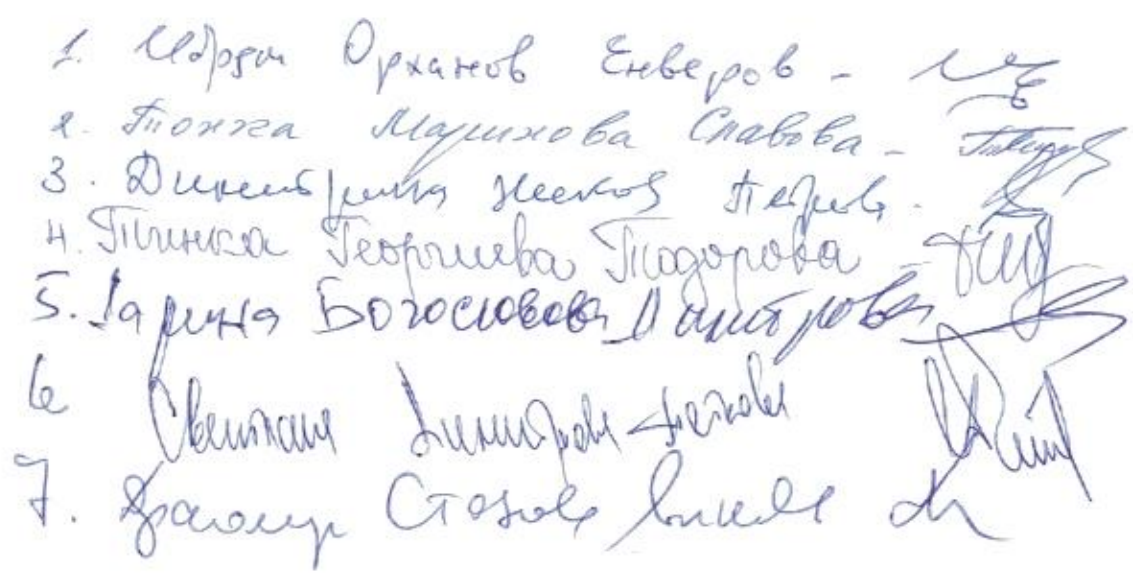 1. Ибрям Орханов Енверов -
2. Тонка Маринова Славова -
3. Димитрина Петрова -
4. Тинка Георгиева Тодорова -
5. Дарина Богословова Димитрова
6 Светлана Димитрова
7. Драгомир Стоянов